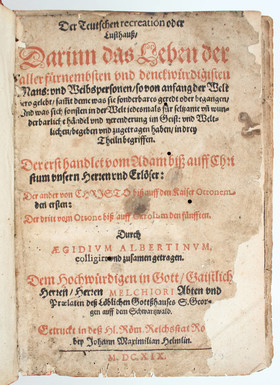 Der Teutschen recreation oder
Lusthauß/
Darinn das Leben der
allerfürnembsten und denckwürdigsten
Mans: und Weibspersonen/ so von anfang der Welt
hero gelebt/ sambt deme was sie sonderbares geredt oder begangen/
Und was sich sonsten in der Welt jedesmals für seltzame und
wunderbarliche händel und verenderung im Geist: und Welt-
lichen/ begeben und zugetragen haben/ in drey
Theiln begriffen.
Der erst handlet vom Adam biß auff Chri
stum unsern Herren und Erlöser:
Der ander von CHRISTO biß auff den Kaiser Ottonem
den ersten:
Der drit vom Ottone biß auff Carolum den fünfften.
Durch
ÆGIDIUM ALBERTINUM,
colligirt und zusamen getragen.
Dem Hochwürdigen in Gott/ Gaistlich
Herren/ Herren MELCHIORI Abten und
Prælaten deß Löblichen Gottshauses S. Geor-
gen auff dem Schwartzwald.
Getruckt in deß Hl. Röm. Reichsstat Ro
bey Johann Maximilian Helmlin.
M. DC. XIX.